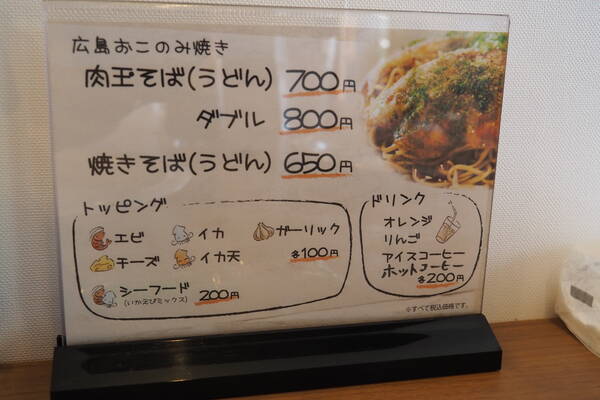 広島おこのみ焼き
肉玉そば(うどん) 700円
ダブル 800円
焼きそば(うどん) 650円
トッピング
エビ イカ ガーリック
チーズ イカ天 各100円
シーフード 200円
(いかえびミックス)
ドリンク
オレンジ
りんご
アイスコーヒー
ホットコーヒー
各200円
※すべて税込価格です。